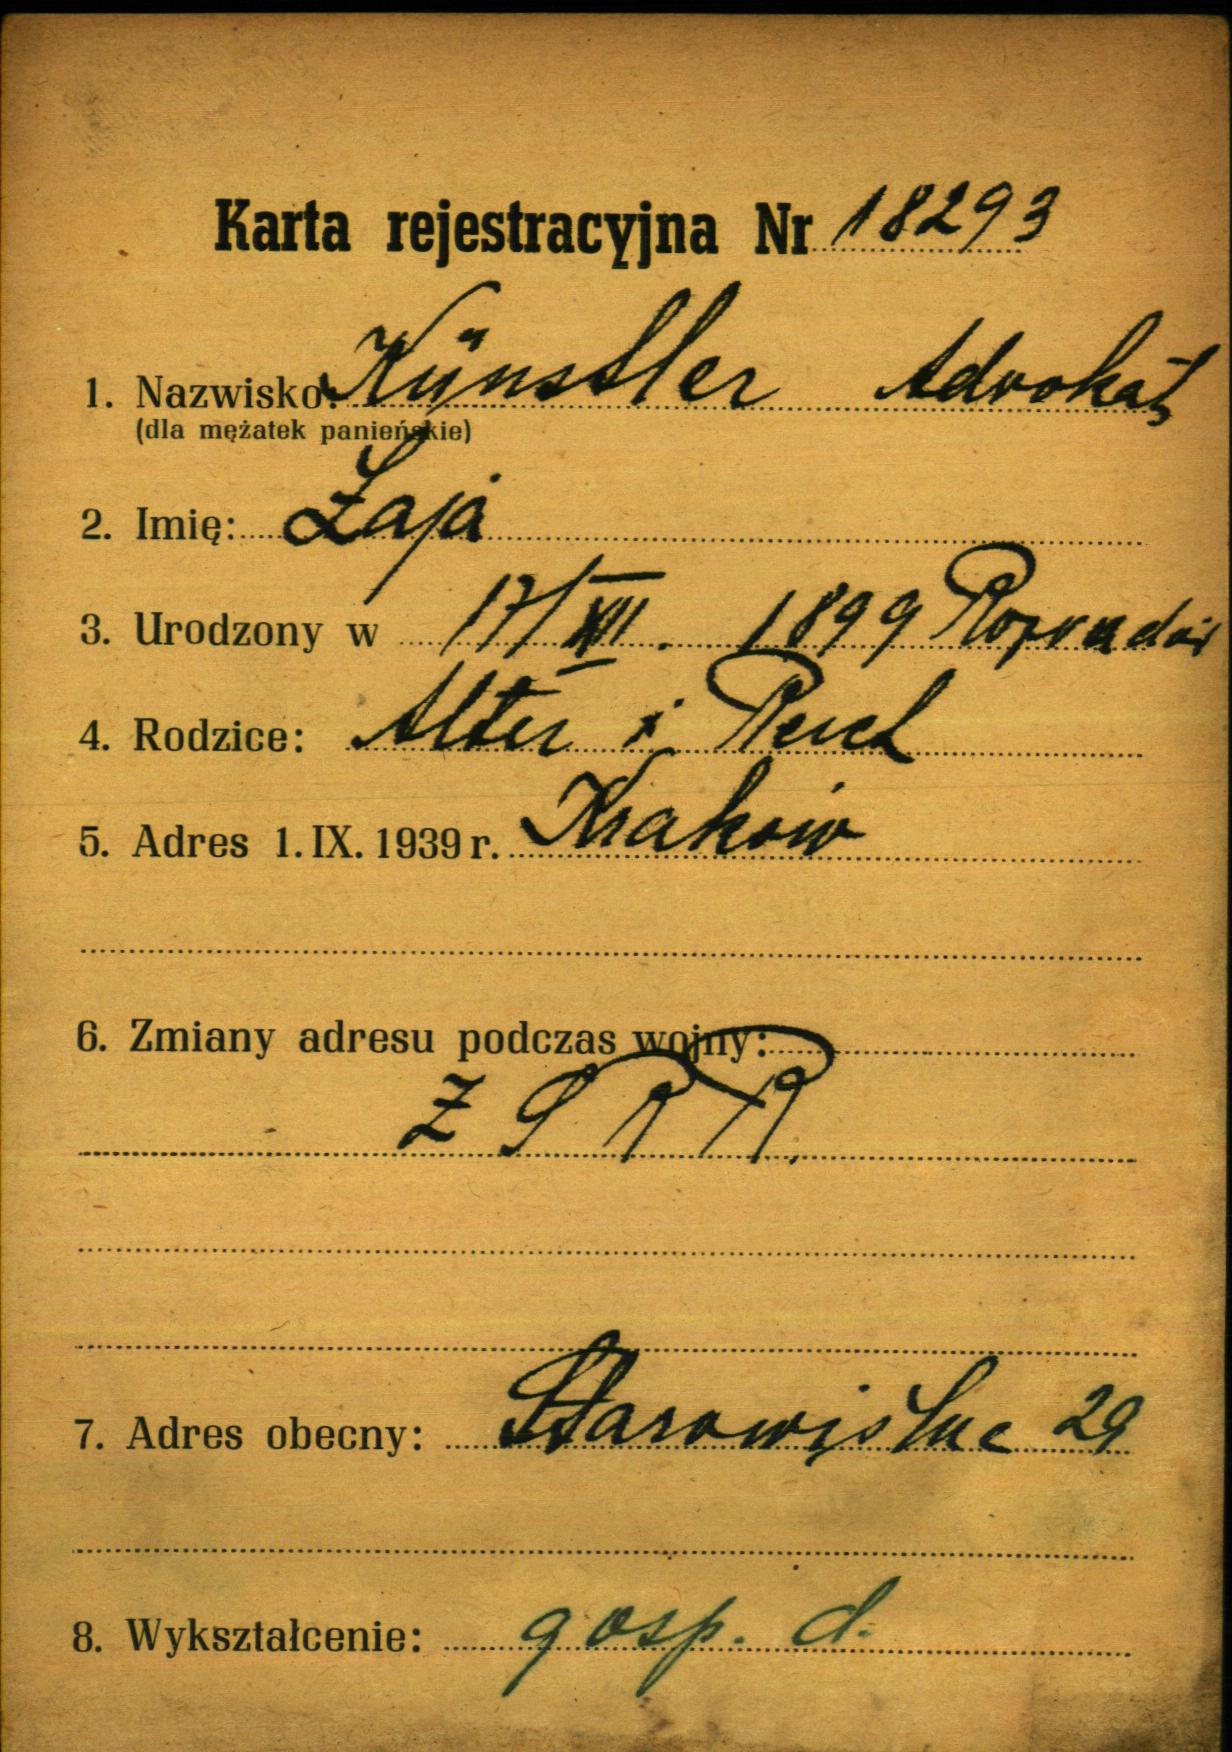 Karta rejestracyjna Nr 18293
1. Nazwisko: Künstler Advokat
(dla mężatek panieńskie)
2. Imię: Łaja
3. Urodzony w 17/XII. 1899
4. Rodzice: Alter i Perel
5. Adres 1. IX. 1939 r. Kraków
6. Zmiany adresu podczas wojny:
Z S R R.
7. Adres obecny: Starowiślna 29
8. Wykształcenie: gosp. d.